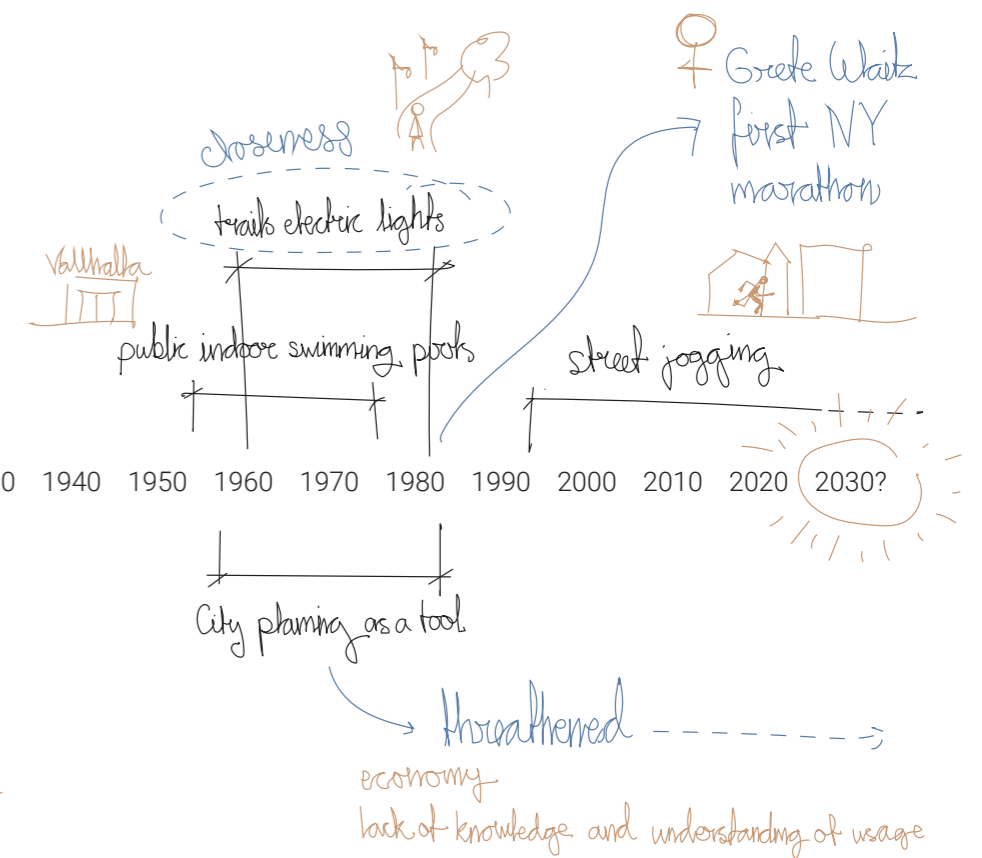 Grete Waitz
first NY
marathon
closeness
trails electric lights
Vallhalla
public indoor swimming pools
street jogging
0 1940 1950 1960 1970 1980 1990 2000 2010 2020 2030?
City planing as a tool
threathened
economy
lack of knowledge and understanding of usage